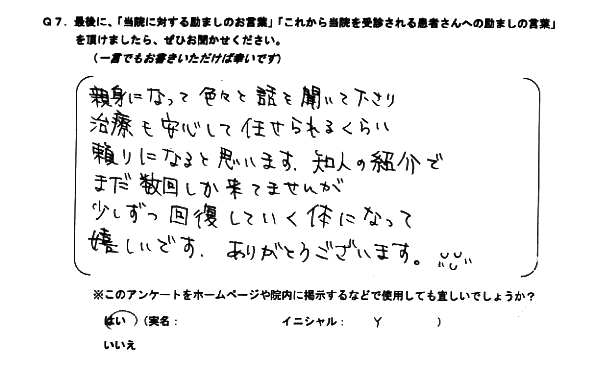 Q7．最後に、「当院に対する励ましのお言葉」「これから当院を受診される患者さんへの励ましの言葉」
を頂けましたら、ぜひお聞かせください。
（一言でもお書きいただけば幸いです）
親身になって色々と話を聞いて下さり
治療も安心して任せられるくらい
頼りになると思います。知人の紹介で
まだ数回しか来てませんが
少しずつ回復していく体になって
嬉しいです。ありがとうございます。
※このアンケートをホームページや院内に掲示するなどで使用しても宜しいでしょうか？
はい （実名： イニシャル： Y ）
いいえ